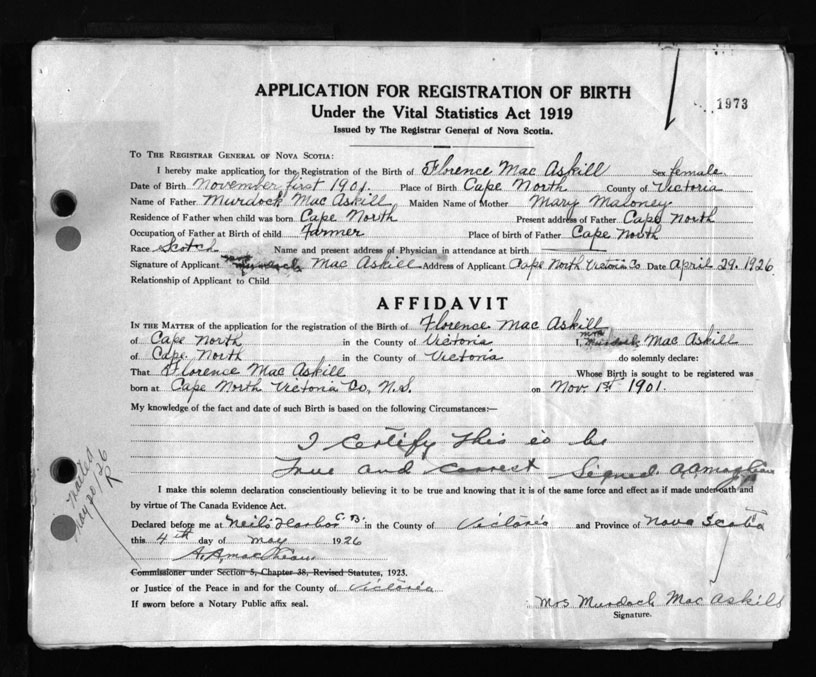 APPLICATION FOR REGISTRATION OF BIRTH
1973
Under the Vital Statistics Act 1919
Issued by The Registrar General of Nova Scotia.
TO THE REGISTRAR GENERAL OF NOVA SCOTIA:
I hereby make application for the Registration of the Birth of Florence Mac Askill Sex female
Date of Birth November first 1901. Place of Birth Cape North County of Victoria
Name of Father Murdock Mac Askill Maiden Name of Mother Mary Maloney
Residence of Father when child was born Cape North Present address of Father Cape North
Occupation of Father at Birth of child Farmer Place of birth of Father Cape North
Race Scotch Name and present address of Physician in attendance at birth
Signature of Applicant Mrs Murdock Mac Askill Address of Applicant Cape North Victoria Co Date April 29. 1926
Relationship of Applicant to Child
AFFIDAVIT
IN THE MATTER of the application for the registration of the Birth of Florence Mac Askill
of Cape North in the County of Victoria I, Mrs Murdock Mac Askill
of Cape North in the County of Victoria do solemnly declare:
That Florence Mac Askill Whose Birth is sought to be registered was
born at Cape North Victoria Co, N.S. on Nov. 1st 1901.
My knowledge of the fact and date of such Birth is based on the following Circumstances:—
I certify this to be
true and correct Signed. A.A.
I make this solemn declaration conscientiously believing it to be true and knowing that it is of the same force and effect as if made under oath and
by virtue of The Canada Evidence Act.
Declared before me at Neil's Harbor C.B. in the County of Victoria and Province of Nova Scotia
this 4th day of May 1926
A.A.
Commissioner under Section 5, Chapter 38, Revised Statutes, 1923.
or Justice of the Peace in and for the County of Victoria
If sworn before a Notary Public affix seal.
Mrs Murdoch Mac Askill
Signature.
May 20/26
R